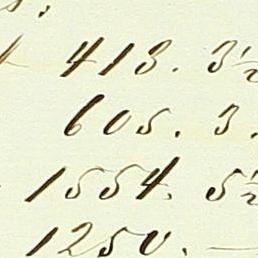 413. 3½
605. 3.
1554. 5½
1250. —